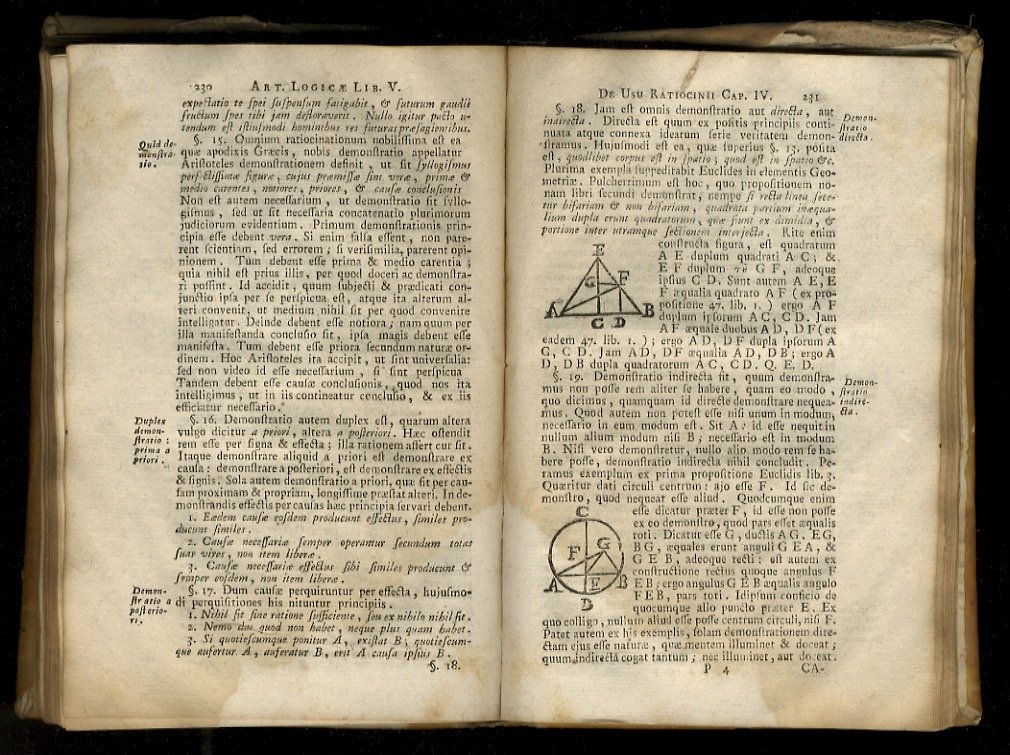 230 ART. LOGICÆ LIB. V.
expectatio te spei suspensum fatigabit, & futurum gaudii
fructum spes tibi jam defloraverit. Nullo igitur pacto u-
tendum est istiusmodi hominibus res futuras præsagientibus.
Quid de-
monstra-
tio.
§. 15. Omnium ratiocinationum nobilissima est ea
quæ apodixis Græcis, nobis demonstratio appellatur
Aristoteles demonstrationem definit, ut sit syllogismus
perfectissimæ figuræ, cujus præmissæ sint veræ, primæ &
medio carentes, notiores, priores, & causæ conclusionis
Non est autem necessarium, ut demonstratio sit syllo-
gismus, sed ut sit necessaria concatenatio plurimorum
judiciorum evidentium. Primum demonstrationis prin-
cipia esse debent vera. Si enim falsa essent, non pare-
rent scientiam, sed errorem; si verisimilia, parerent opi-
nionem. Tum debent esse prima & medio carentia;
quia nihil est prius illis, per quod doceri ac demonstra-
ri possint. Id accidit, quum subjecti & prædicati con-
junctio ipsa per se perspicua est, atque ita alterum al-
teri convenit, ut medium nihil sit per quod convenire
intelligatur. Deinde debent esse notiora; nam quum per
illa manifestanda conclusio sit, ipsa magis debent esse
manifesta. Tum debent esse priora secundum naturæ or-
dinem. Hoc Aristoteles ita accipit, ut sint universalia:
sed non video id esse necessarium, si sint perspicua
Tandem debent esse causæ conclusionis, quod nos ita
intelligimus, ut in iis contineatur conclusio, & ex iis
efficiatur necessario.
Duplex
demon-
stratio:
prima a
priori.
§. 16. Demonstratio autem duplex est, quarum altera
vulgo dicitur a priori, altera a posteriori. Hæc ostendit
rem esse per signa & effecta; illa rationem affert cur sit.
Itaque demonstrare aliquid a priori est demonstrare ex
causa: demonstrare a posteriori, est demonstrare ex effectis
& signis. Sola autem demonstratio a priori, quæ fit per cau-
sam proximam & propriam, longissime præstat alteri. In de-
monstrandis effectis per caulas hæc principia servari debent.
1. Eædem causæ eosdem producunt effectus, similes pro-
ducunt similes.
2. Causæ necessariæ semper operantur secundum totas
suas vires, non item liberæ.
3. Causæ necessariæ effectus sibi similes producunt &
semper eosdem, non item liberæ.
Demon-
stratio a
posterio-
ri.
§. 17. Dum causæ perquiruntur per effecta, hujusmo-
di perquisitiones his nituntur principiis.
1. Nihil fit sine ratione sufficiente, seu ex nihilo nihil fit.
2. Nemo dat quod non habet, neque plus quam habet.
3. Si quotiescumque ponitur A, existat B; quotiescum-
que aufertur A, auferatur B, erit A causa ipsius B.
§. 18.
DE USU RATIOCINII CAP. IV. 231
§. 18. Jam est omnis demonstratio aut directa, aut
indirecta. Directa est quum ex positis principiis conti-
nuata atque connexa idearum serie veritatem demon-
stramus. Hujusmodi est ea, quæ superius §. 13. posita
est, quodlibet corpus est in spatio; quod est in spatio &c.
Plurima exempla suppeditabit Euclides in elementis Geo-
metriæ. Pulcherrimum est hoc, quo propositionem no-
nam libri secundi demonstrat, nempe si recta linea sece-
tur bifariam & non bifariam, quadrata partium inæqua-
lium dupla erunt quadratorum, quæ fiunt ex dimidia, &
portione inter utramque sectionem interjecta. Rite enim
Demon-
stratio
directa.
constructa figura, est quadratum
A E duplum quadrati A C; &
E F duplum G F, adeoque
ipsius C D. Sunt autem A E, E
F æqualia quadrato A F (ex pro-
positione 47. lib. 1.) ergo A F
duplum ipsorum A C, C D. Jam
A F æquale duobus A D, D F (ex
E
G F
A B
C D
eadem 47. lib. 1.); ergo A D, D F dupla ipsorum A
G, C D. Jam A D, D F æqualia A D, D B; ergo A
D, D B dupla quadratorum A C, C D. Q. E. D.
§. 19. Demonstratio indirecta fit, quum demonstra-
mus non posse rem aliter se habere, quam eo modo,
quo dicimus, quamquam id directe demonstrare nequea-
mus. Quod autem non potest esse nisi unum in modum,
necessario in eum modum est. Sit A: id esse nequit in
nullum alium modum nisi B; necessario est in modum
B. Nisi vero demonstretur, nullo alio modo rem se ha-
bere posse, demonstratio indirecta nihil concludit. Pe-
tamus exemplum ex prima propositione Euclidis lib. 3.
Quæritur dati circuli centrum: ajo esse F. Id sic de-
monstro, quod nequeat esse aliud. Quodcumque enim
Demon-
stratio
indire-
cta.
esse dicatur præter F, id esse non posse
ex eo demonstro, quod pars esset æqualis
toti. Dicatur esse G, ductis A G. E G,
B G, æquales erunt anguli G E A, &
G E B, adeoque recti: est autem ex
constructione rectus quoque angulus F
E B; ergo angulus G E B æqualis angulo
F E B, pars toti. Idipsum conficio de
quocumque alio puncto præter E. Ex
C
F G
A E B
D
quo colligo, nullum aliud esse posse centrum circuli, nisi F.
Patet autem ex his exemplis, solam demonstrationem dire-
ctam ejus esse naturæ, quæ mentem illuminet & doceat;
quum indirecta cogat tantum; nec illuminet, aut doceat.
P 4 CA-